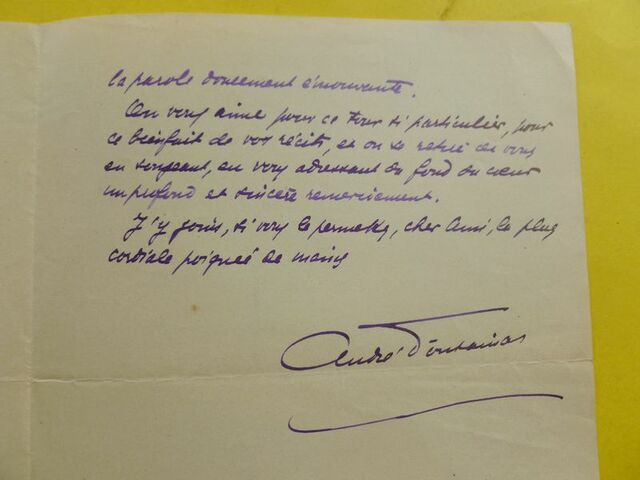 la parole doucement émouvante.
On vous aime pour ce tour si particulier, pour
ce bienfait de vos récits, et on se retire de vous
en songeant, en vous adressant du fond du cœur
un profond et sincère remerciement.
J'y joins, si vous le permettez, cher Ami, la plus
cordiale poignée de mains
André Fontainas